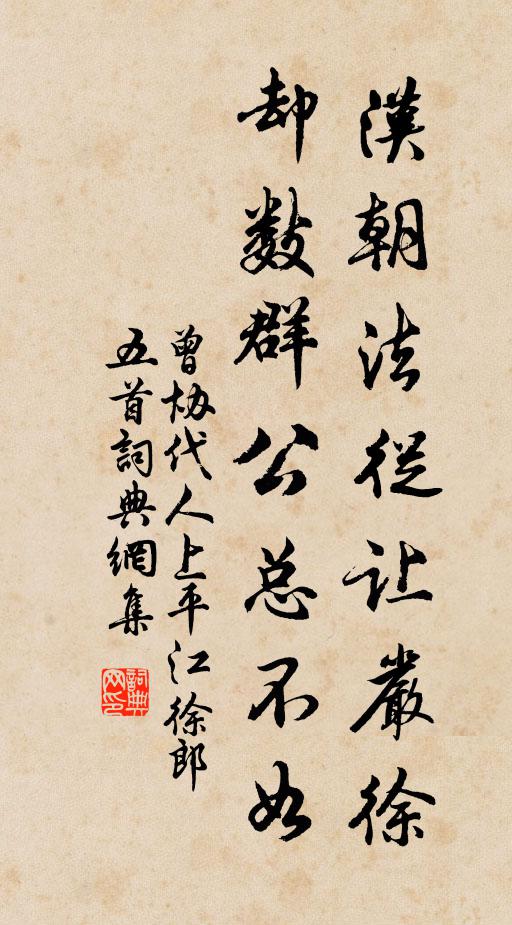 漢朝法從让嚴徐
却数群公总不如
曾协代人上平江徐郎
五首詞典網集
詞典網印